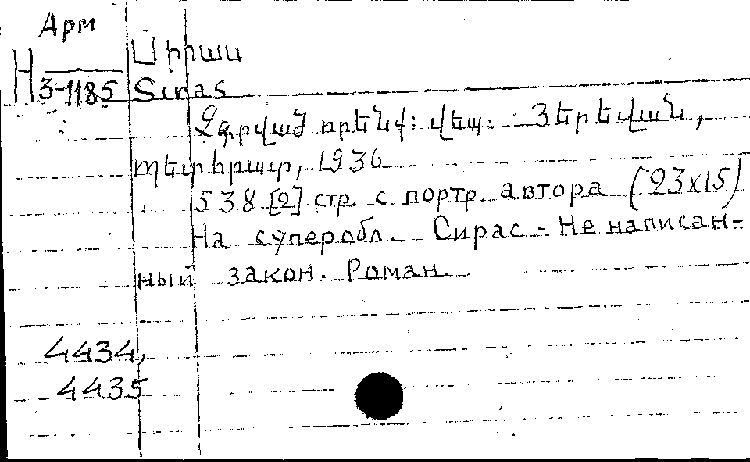 Арм
Սիրաս
Н 3-1185 Siras
Չգրված որենվ: վեպ: Յերեվան,
Պետհրար, 1936
538 [2] стр. с портр. автора (23x15)
На суперобл. Сирас - Не написан-
ный закон. Роман.
4434,
4435